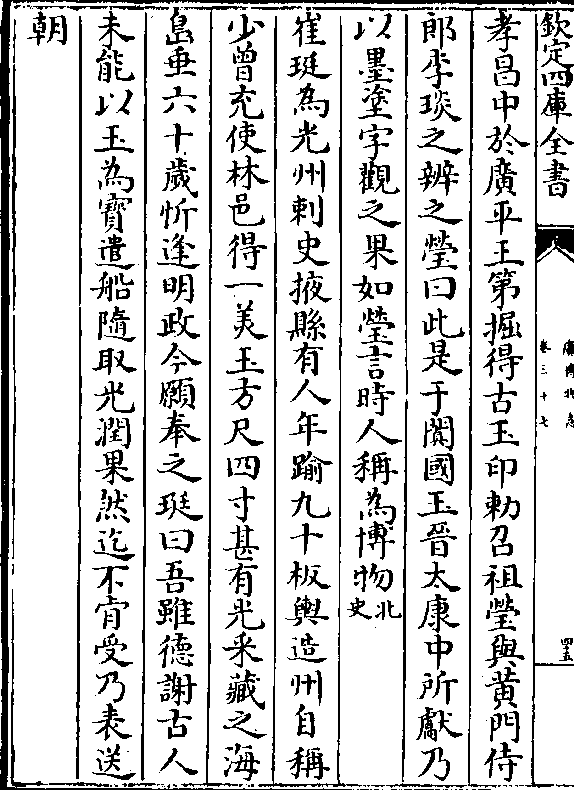 欽定四庫全書
廣博物志
卷三十七
四五
孝昌中於廣平王第掘得古玉印勅召祖瑩與黃門侍
郎李琰之辨之瑩曰此是于闐國玉晉太康中所獻乃
以墨塗字觀之果如瑩言時人稱為博物北史
崔珽為光州剌史掖縣有人年踰九十板輿造州自稱
少曾充使林邑得一美玉方尺四寸甚有光采藏之海
島垂六十歲忻逢明政今願奉之珽曰吾雖德謝古人
未能以玉為寶遣船隨取光潤果然迄不肯受乃表送
朝